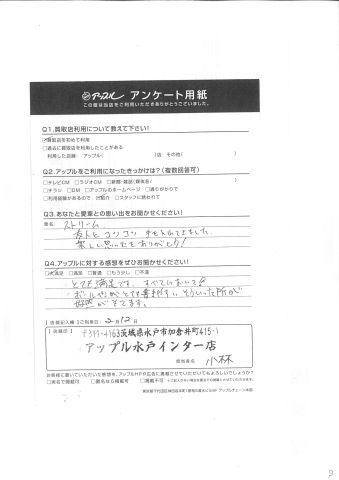 アップル アンケート用紙
この度は当店をご利用いただきありがとうございました。
Q1.買取店利用について教えて下さい!
買取店を初めて利用
□過去に買取店を利用したことがある
利用した店舗( アップル( )店 その他( )
Q2.アップルをご利用になったきっかけは?(複数回答可)
□テレビCM □ラジオCM □新聞・雑誌(媒体名/ )
□チラシ □DM □アップルのホームページ □通りがかりで
□利用経験があるので □紹介 □スタッフに誘われて
Q3.あなたと愛車との思い出をお聞かせください!
車名( ストリーム
友人と コツコツ
楽しい思い出をありがとう!
Q4.アップルに対する感想をぜひお聞かせください!
大満足 □満足 □普通 □もう少し □不満
・とても満足です。すべてにおいて
好感がもてます。
【店舗記入欄】ご利用日: 2月12日
【店舗印】
〒311-4163茨城県水戸市加倉井町415-1
アップル水戸インター店
担当者名 小林
お客様に書いていただいた感想を、アップルHPや広告に掲載させていただいてもよろしいでしょうか?
□実名で掲載可 □匿名なら掲載可 □掲載不可